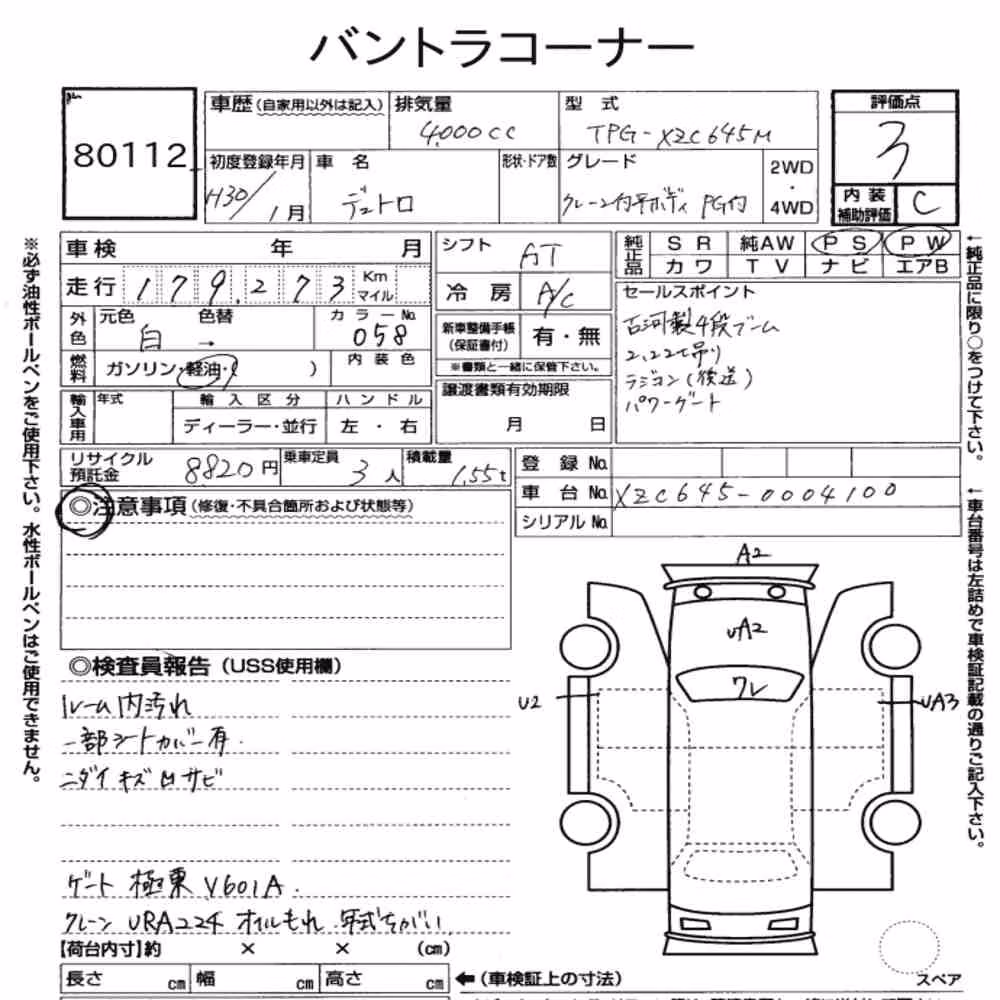 バントラコーナー
80112
車歴 (自家用以外は記入) 排気量 型式
4,000cc TPG-XZC645M
初度登録年月 車名 形状・ドア数 グレード 2WD・4WD
H30/1月 デュトロ クレーン付平ボディ PG付
評価点
3
内装補助評価 C
車検 年 月
走行 179.273 Km マイル
外色 元色 色替 カラーNo.
白 → 058
燃料 ガソリン・軽油・( ) 内装色
輸入車用 年式 輸入区分 ハンドル
ディーラー・並行 左・右
シフト AT
冷房 A/C
新車整備手帳(保証書付) 有・無
※書類と一緒に保管下さい。
譲渡書類有効期限
月 日
純正品 SR 純AW PS PW
カワ TV ナビ エアB
セールスポイント
古河製4段ブーム
2.22t吊り
ラジコン(後送)
パワーゲート
リサイクル預託金 8820円 乗車定員 3人 積載量 1.55t
登録No.
車台No. XZC645-0004100
シリアルNo.
◎注意事項 (修復・不具合箇所および状態等)
◎検査員報告 (USS使用欄)
ルーム内汚れ
一部シートカバー有.
ニダイ キズ凹サビ
ゲート 極東 V601A.
クレーン URA224 オイルもれ.年式ちがい.
【荷台内寸】約 × × (cm)
長さ cm 幅 cm 高さ cm
←(車検証上の寸法)
A2
UA2
ワレ
U2
UA3
スペア
※必ず油性ボールペンをご使用下さい。水性ボールペンはご使用できません。
←純正品に限り○をつけて下さい。
←車台番号は左詰めで車検証記載の通りご記入下さい。